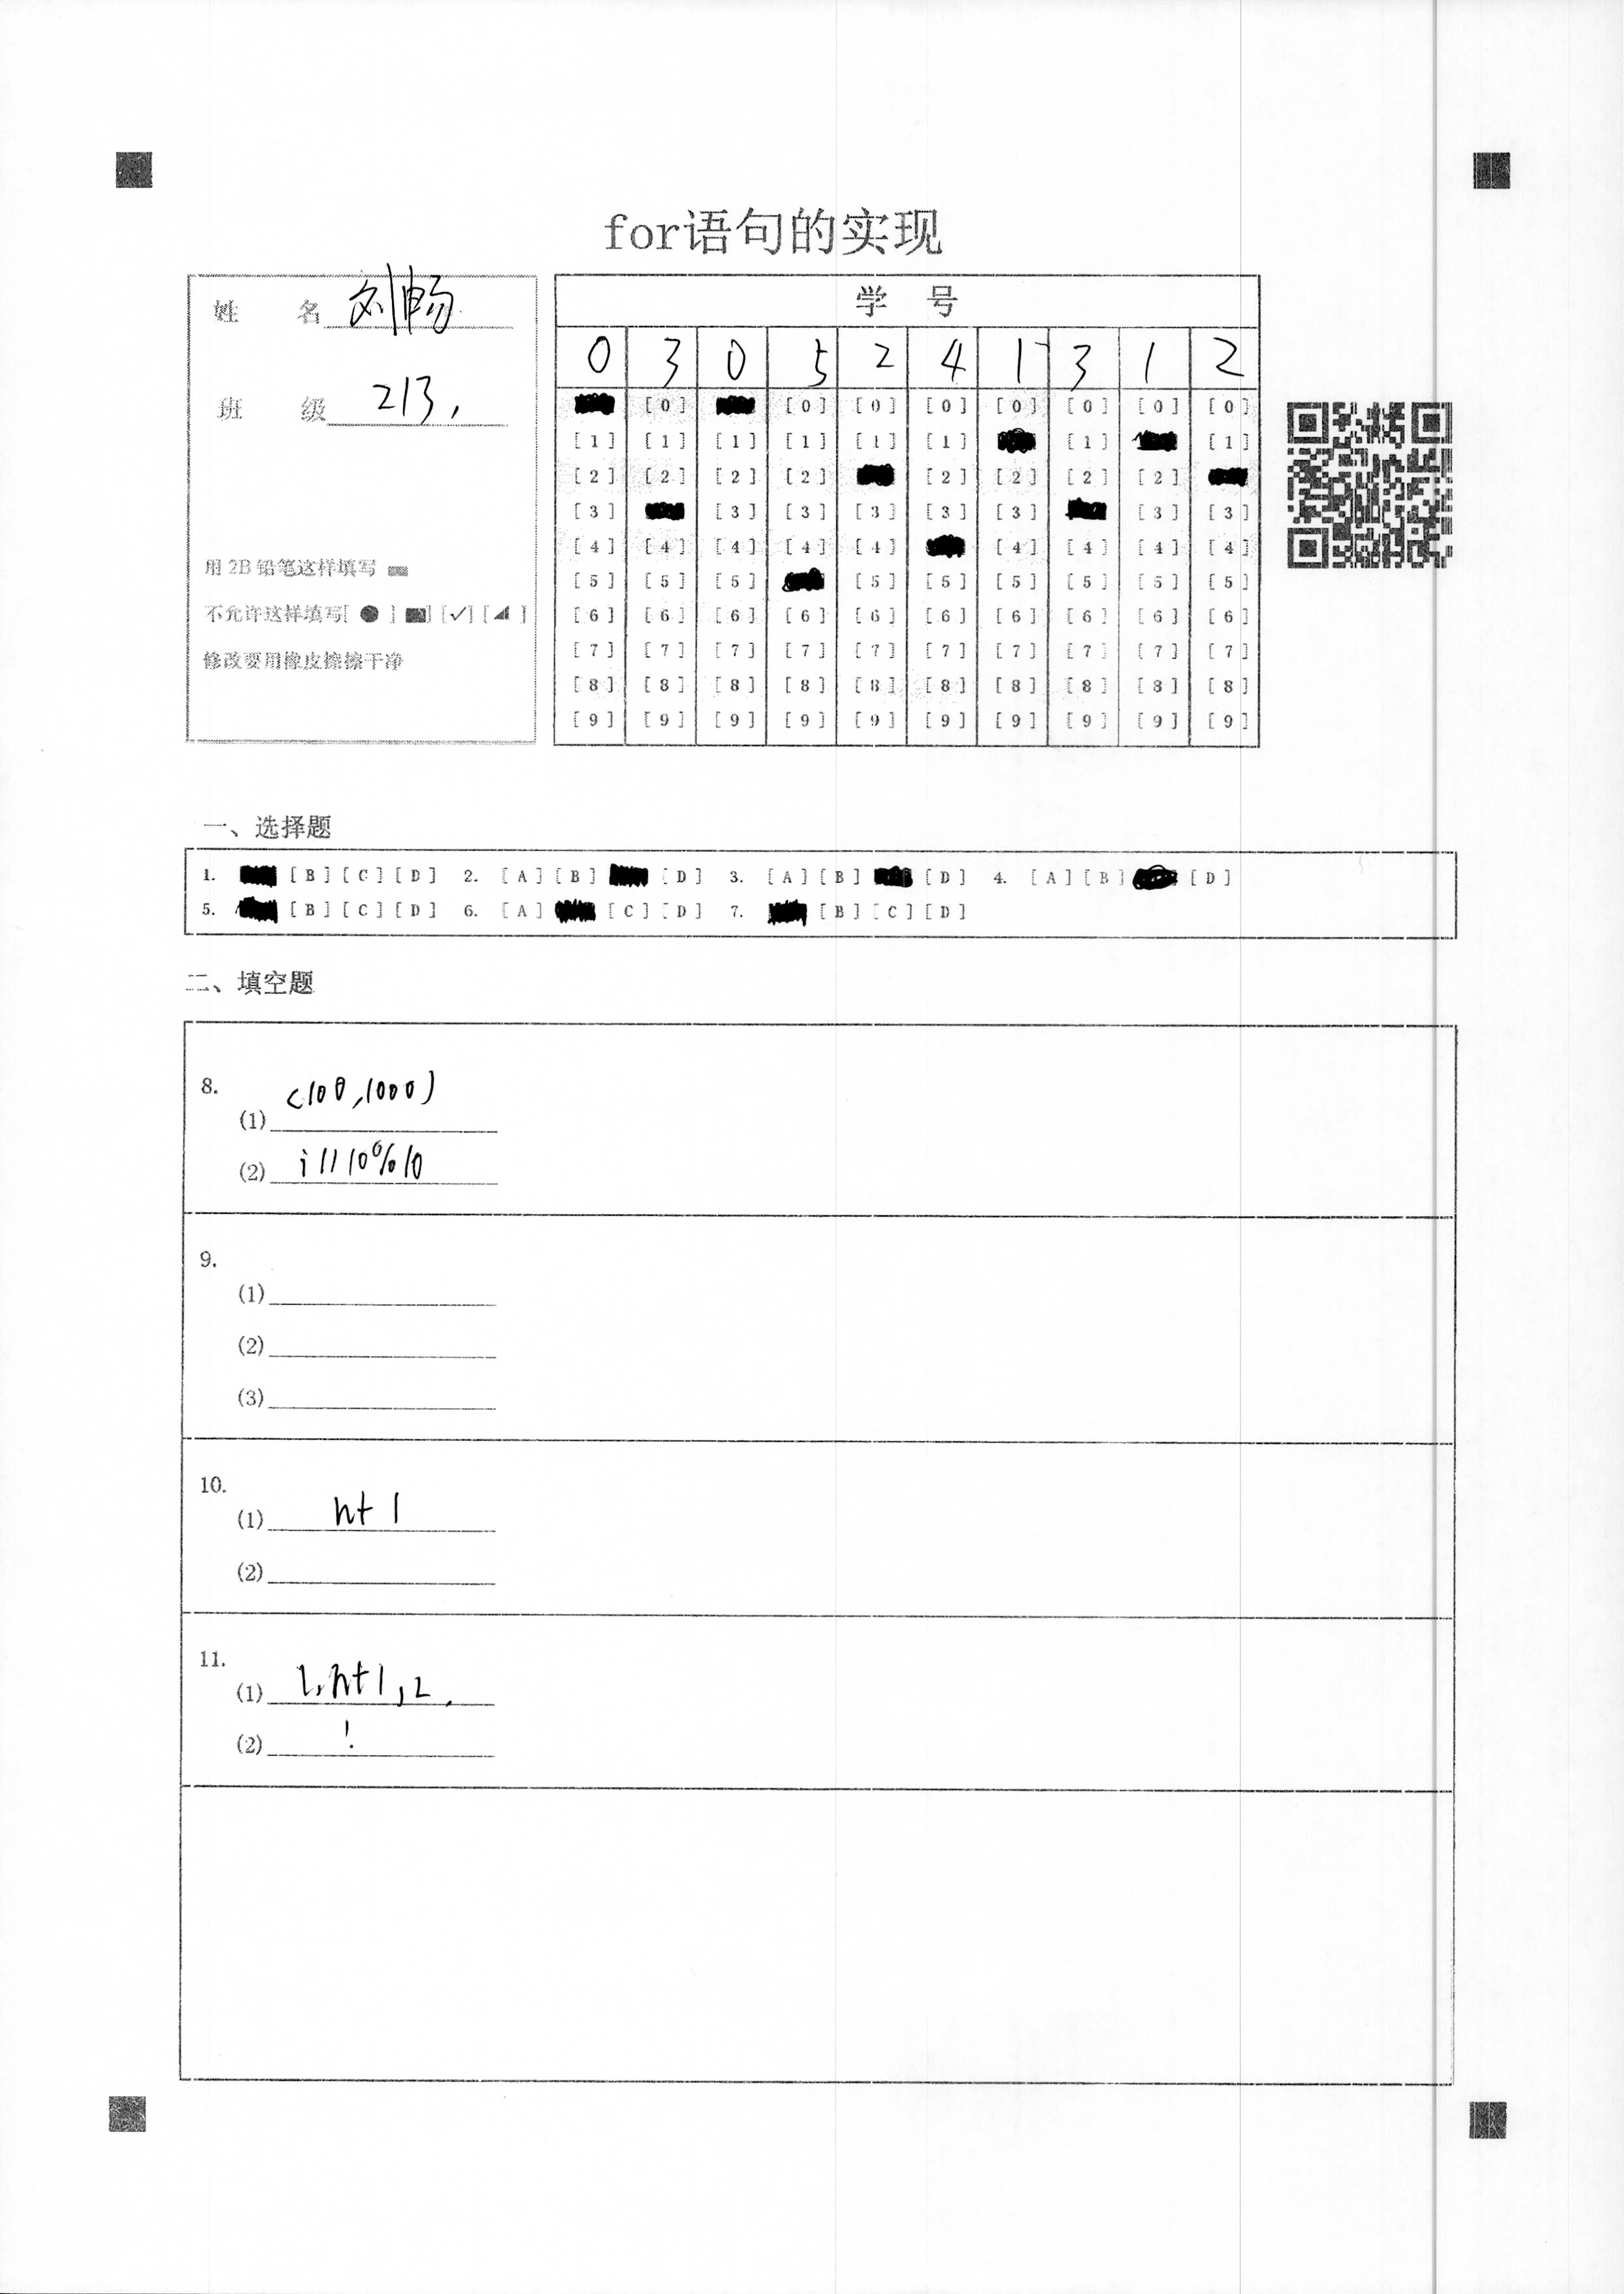 for语句的实现
姓 名 刘畅
班 级 213.
用 2B 铅笔这样填写
不允许这样填写[ ● ] [■] [✓] [◢ ]
修改要用橡皮擦擦干净
学 号
0 3 0 5 2 4 1 3 1 2
[0] [0] [0] [0] [0] [0] [0] [0]
[1] [1] [1] [1] [1] [1] [1] [1]
[2] [2] [2] [2] [2] [2] [2] [2]
[3] [3] [3] [3] [3] [3] [3] [3]
[4] [4] [4] [4] [4] [4] [4] [4] [4]
[5] [5] [5] [5] [5] [5] [5] [5] [5]
[6] [6] [6] [6] [6] [6] [6] [6] [6] [6]
[7] [7] [7] [7] [7] [7] [7] [7] [7] [7]
[8] [8] [8] [8] [8] [8] [8] [8] [8] [8]
[9] [9] [9] [9] [9] [9] [9] [9] [9] [9]
一、选择题
1. [B] [C] [D] 2. [A] [B] [D] 3. [A] [B] [D] 4. [A] [B] [D]
5. [B] [C] [D] 6. [A] [C] [D] 7. [B] [C] [D]
二、填空题
8.
(1) (100,1000)
(2) i//10%10
9.
(1)
(2)
(3)
10.
(1) n+1
(2)
11.
(1) 1,n+1,2
(2) !